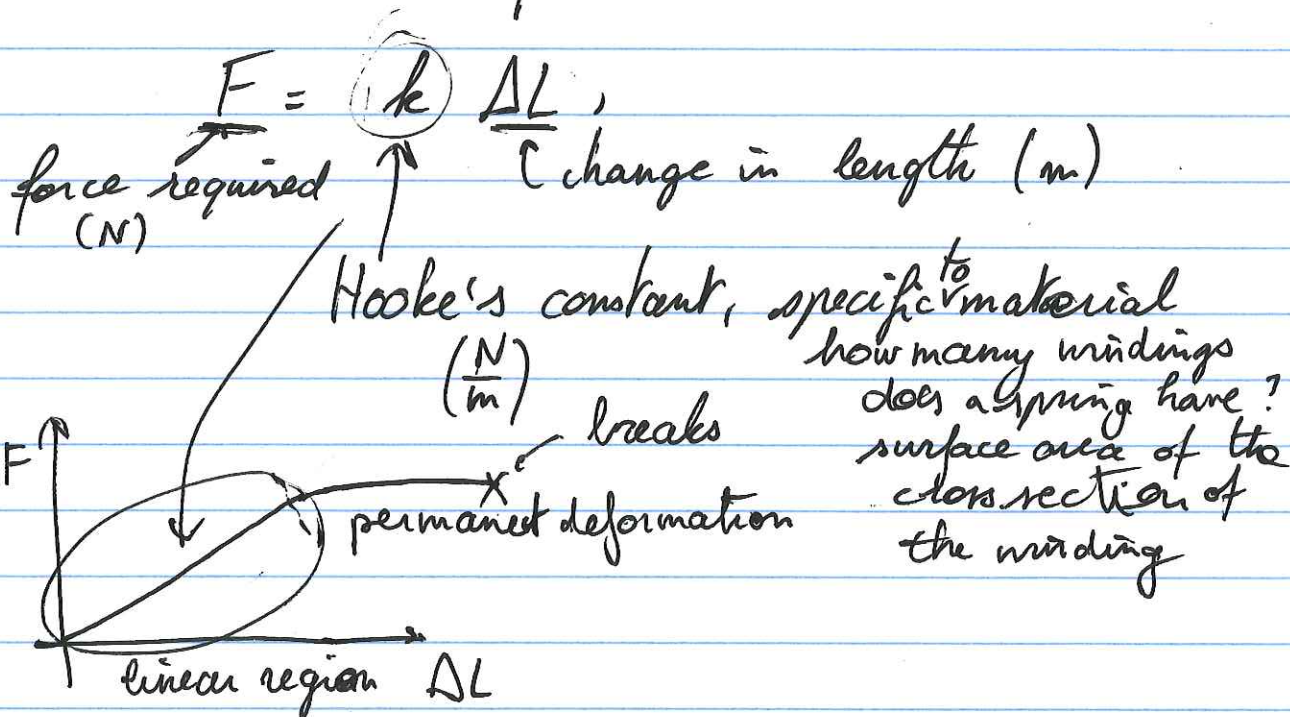 F = k ΔL,
force required
(N)
change in length (m)
Hooke's constant, specific to material
(N/m)
how many windings
does a spring have?
surface area of the
cross section of
the winding
breaks
F
permanent deformation
linear region ΔL